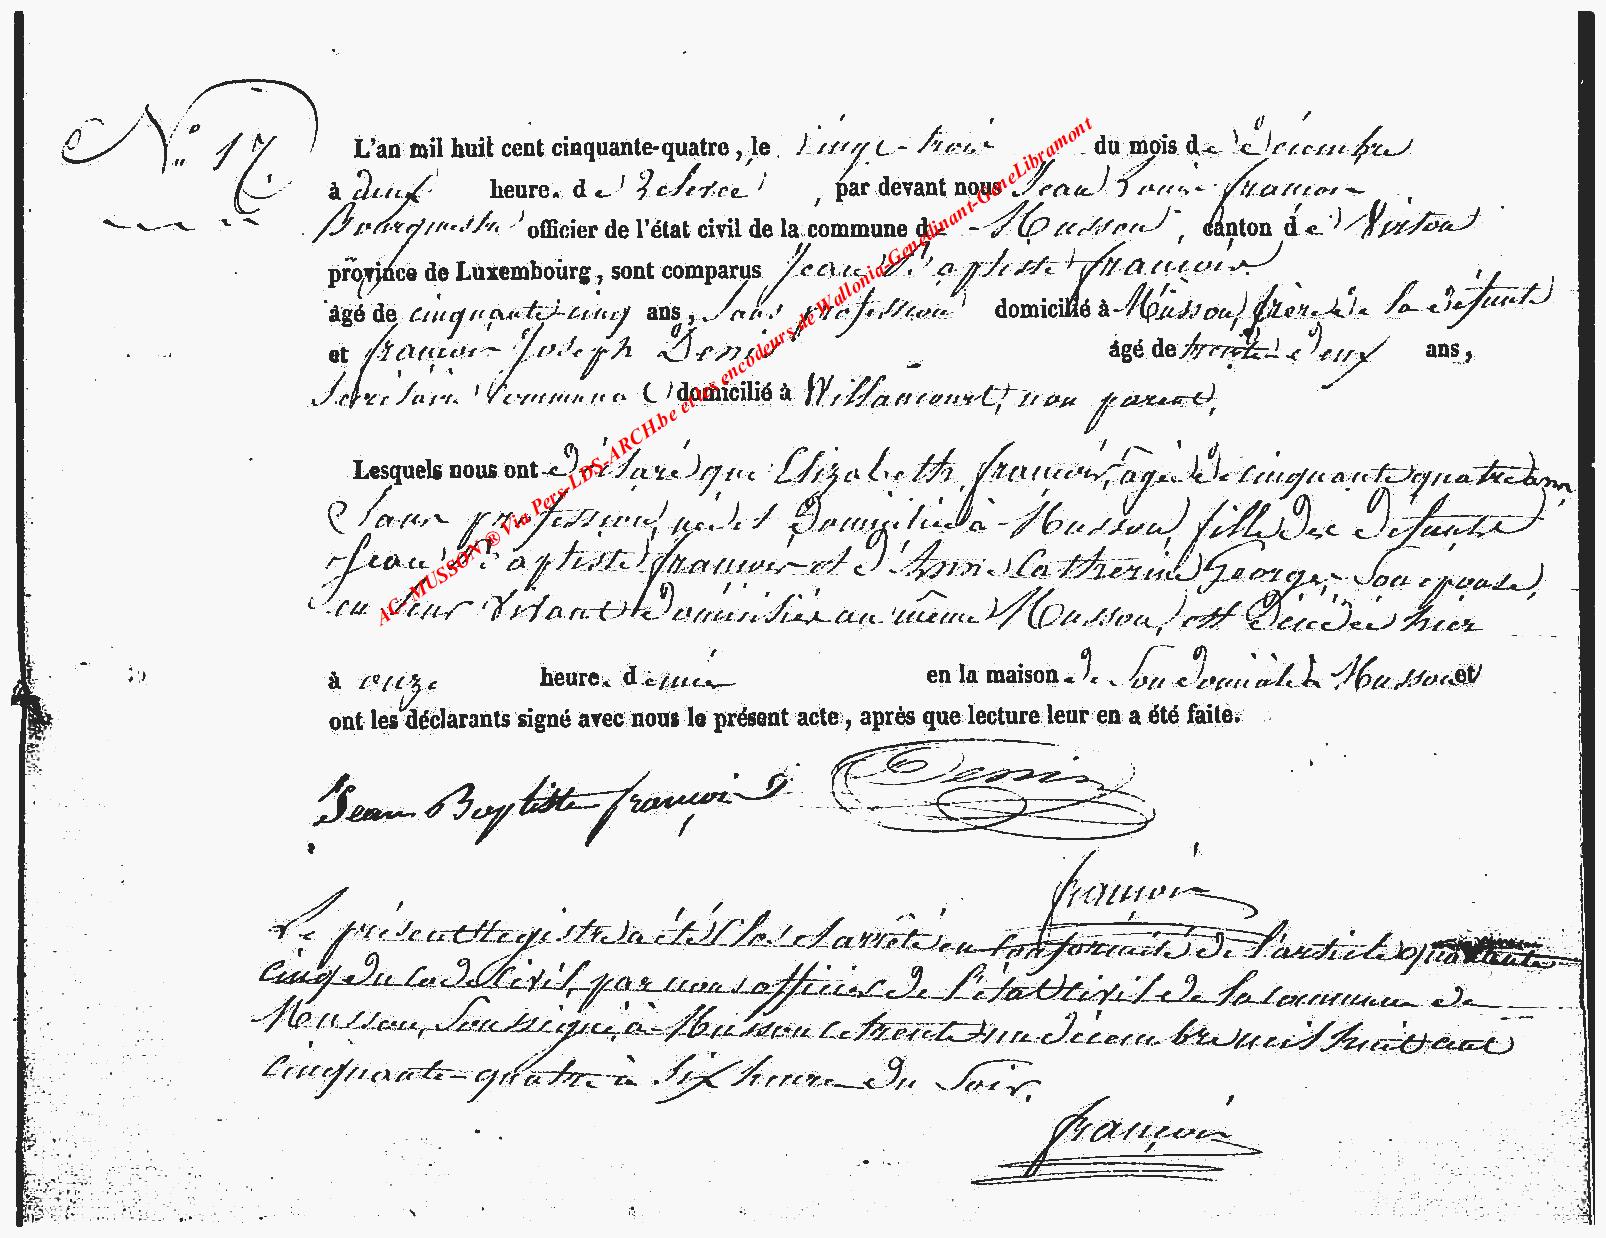 N° 17
L'an mil huit cent cinquante-quatre, le vingt-trois du mois de décembre
à deux heure. de relevée, par devant nous Jean Louis françois
Bourgmestre officier de l'état civil de la commune de Musson, canton de Virton
province de Luxembourg, sont comparus Jean Baptiste françois
âgé de cinquante-cinq ans, sans profession domicilié à Musson, frère de la défunte
et françois Joseph Denis âgé de trente deux ans,
Secrétaire Communal domicilié à Willancourt, non parent,
Lesquels nous ont déclaré que Elizabeth françois, âgée de cinquante quatre ans
Sans profession, née et domiciliée à Musson, fille des défunts
Jean Baptiste françois et d'Anne Catherine Georges son épouse,
en leur vivant domiciliés au même Musson, est décédée hier
à onze heure. du soir en la maison de son domicile à Musson et
ont les déclarants signé avec nous le présent acte, après que lecture leur en a été faite.
Jean Baptiste françois Denis
françois
Le présent Registre a été Clos et arrêté en conformité de l'article quarante
cinq du code Civil, par nous officier de l'état civil de la commune de
Musson, soussigné, à Musson le trente un décembre mil huit cent
cinquante-quatre à six heures du soir.
françois
AC-MUSSON ® Via Pers-LDS-ARCH.be et les encodeurs de Wallonia-Genedinant-GeneLibramont